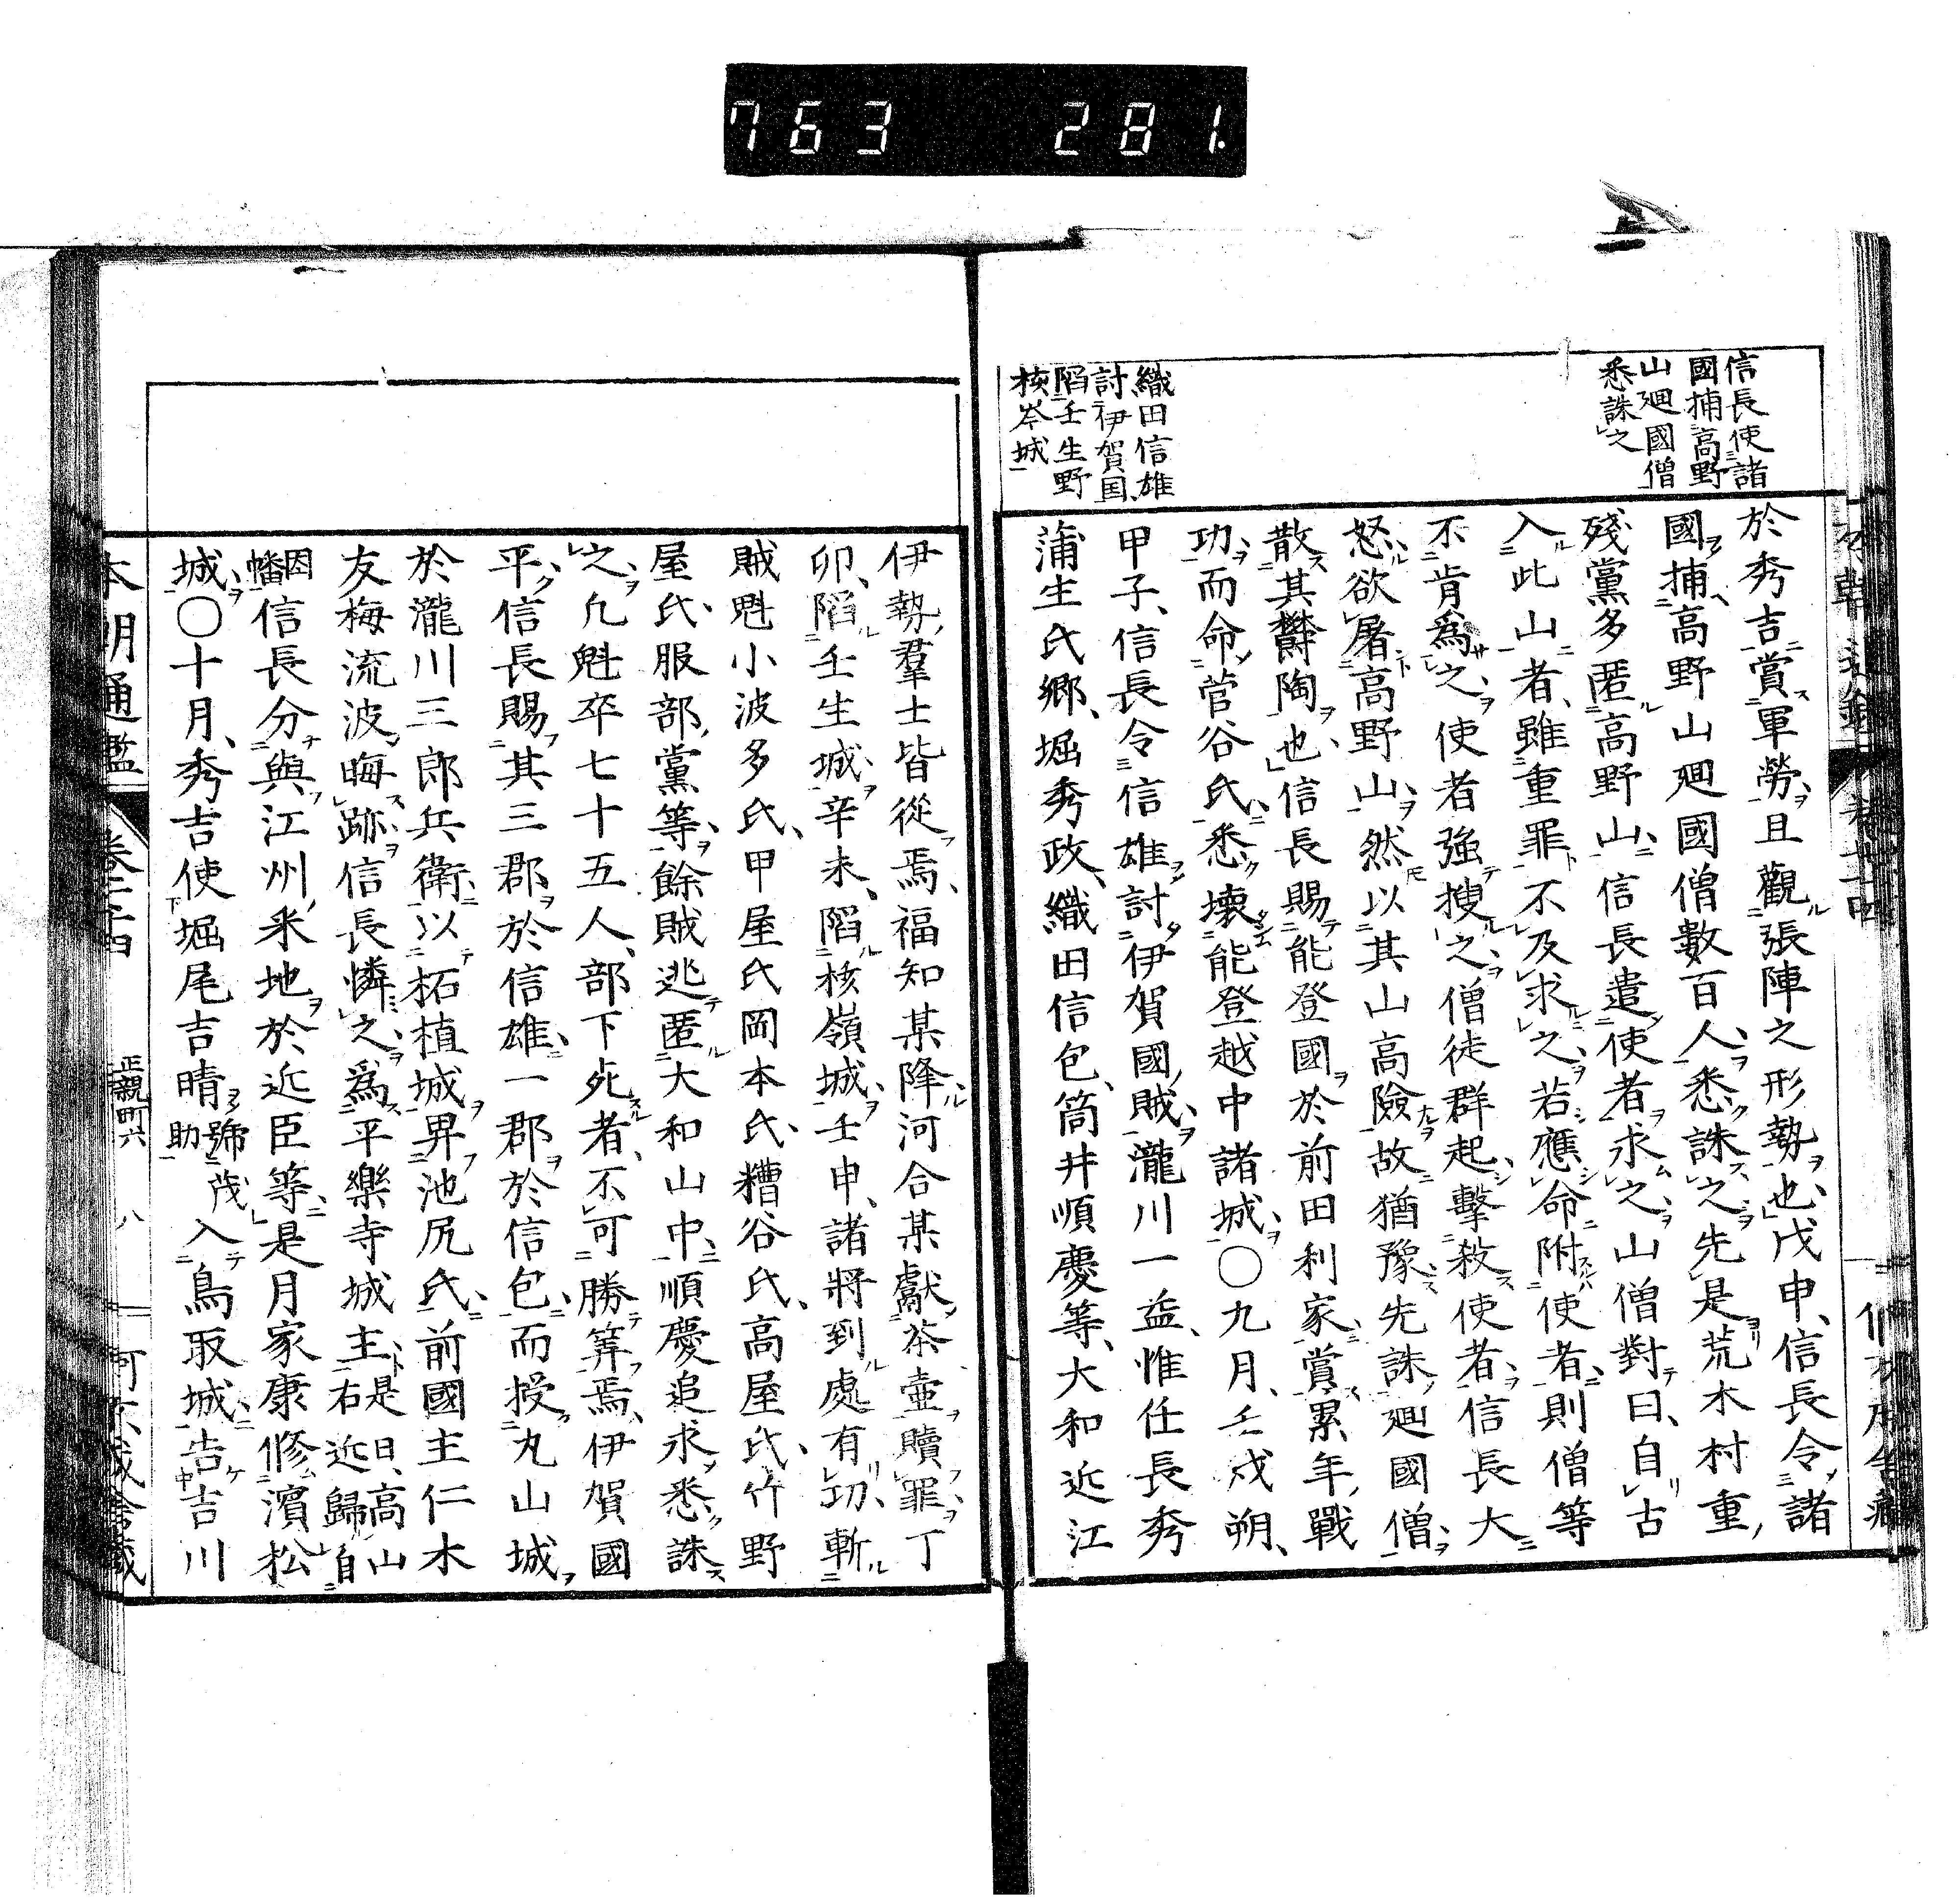 763 281.
信長使諸
國捕高野
山廻國僧
悉誅之
織田信雄
討伊賀国
陷壬生野
核岑城
於秀吉賞軍勞且觀張陣之形勢也戊申信長令諸
國捕高野山廻國僧數百人悉誅之先是荒木村重
殘黨多匿高野山信長遣使者求之山僧對曰自古
入此山者雖重罪不及求之若應命附使者則僧等
不肯為之使者強搜之僧徒群起擊殺使者信長大
怒欲屠高野山然以其山高險故猶豫先誅廻國僧
散其欝陶也信長賜能登國於前田利家賞累年戰
功而命菅谷氏悉壞能登越中諸城〇九月壬戌朔
甲子信長令信雄討伊賀國賊瀧川一益惟任長秀
蒲生氏郷堀秀政織田信包筒井順慶等大和近江
伊勢羣士皆從焉福知某降河合某獻茶壷贖罪丁
卯陷壬生城辛未陷核嶺城壬申諸將到處有功斬
賊魁小波多氏甲屋氏岡本氏糟谷氏高屋氏竹野
屋氏服部黨等餘賊逃匿大和山中順慶追求悉誅
之凡魁卒七十五人部下死者不可勝筭焉伊賀國
平信長賜其三郡於信雄一郡於信包而授丸山城
於瀧川三郎兵衛以柘植城畀池尻氏前國主仁木
友梅流波晦跡信長憐之為平樂寺城主是日高山右近歸自
因幡信長分與江州釆地於近臣等是月家康修濱松
城〇十月秀吉使堀尾吉晴號茂助入鳥取城告吉川
本朝通鑑 卷二十四 正親町六 八